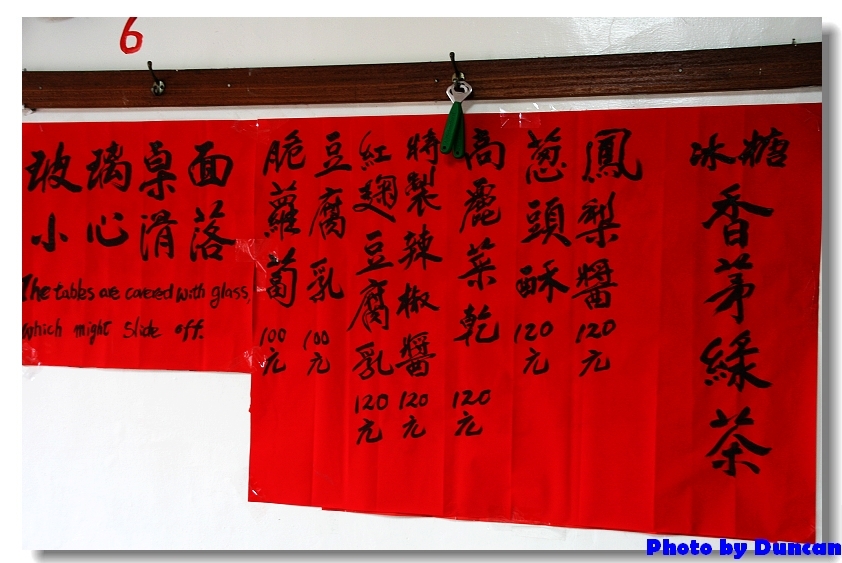 6
冰糖
香茅綠茶
鳳梨醬120元
蔥頭酥120元
高麗菜乾120元
特製辣椒醬120元
紅麴豆腐乳120元
豆腐乳100元
脆蘿蔔100元
玻璃桌面
小心滑落
The tables are covered with glass,
which might slide off.
Photo by Duncan